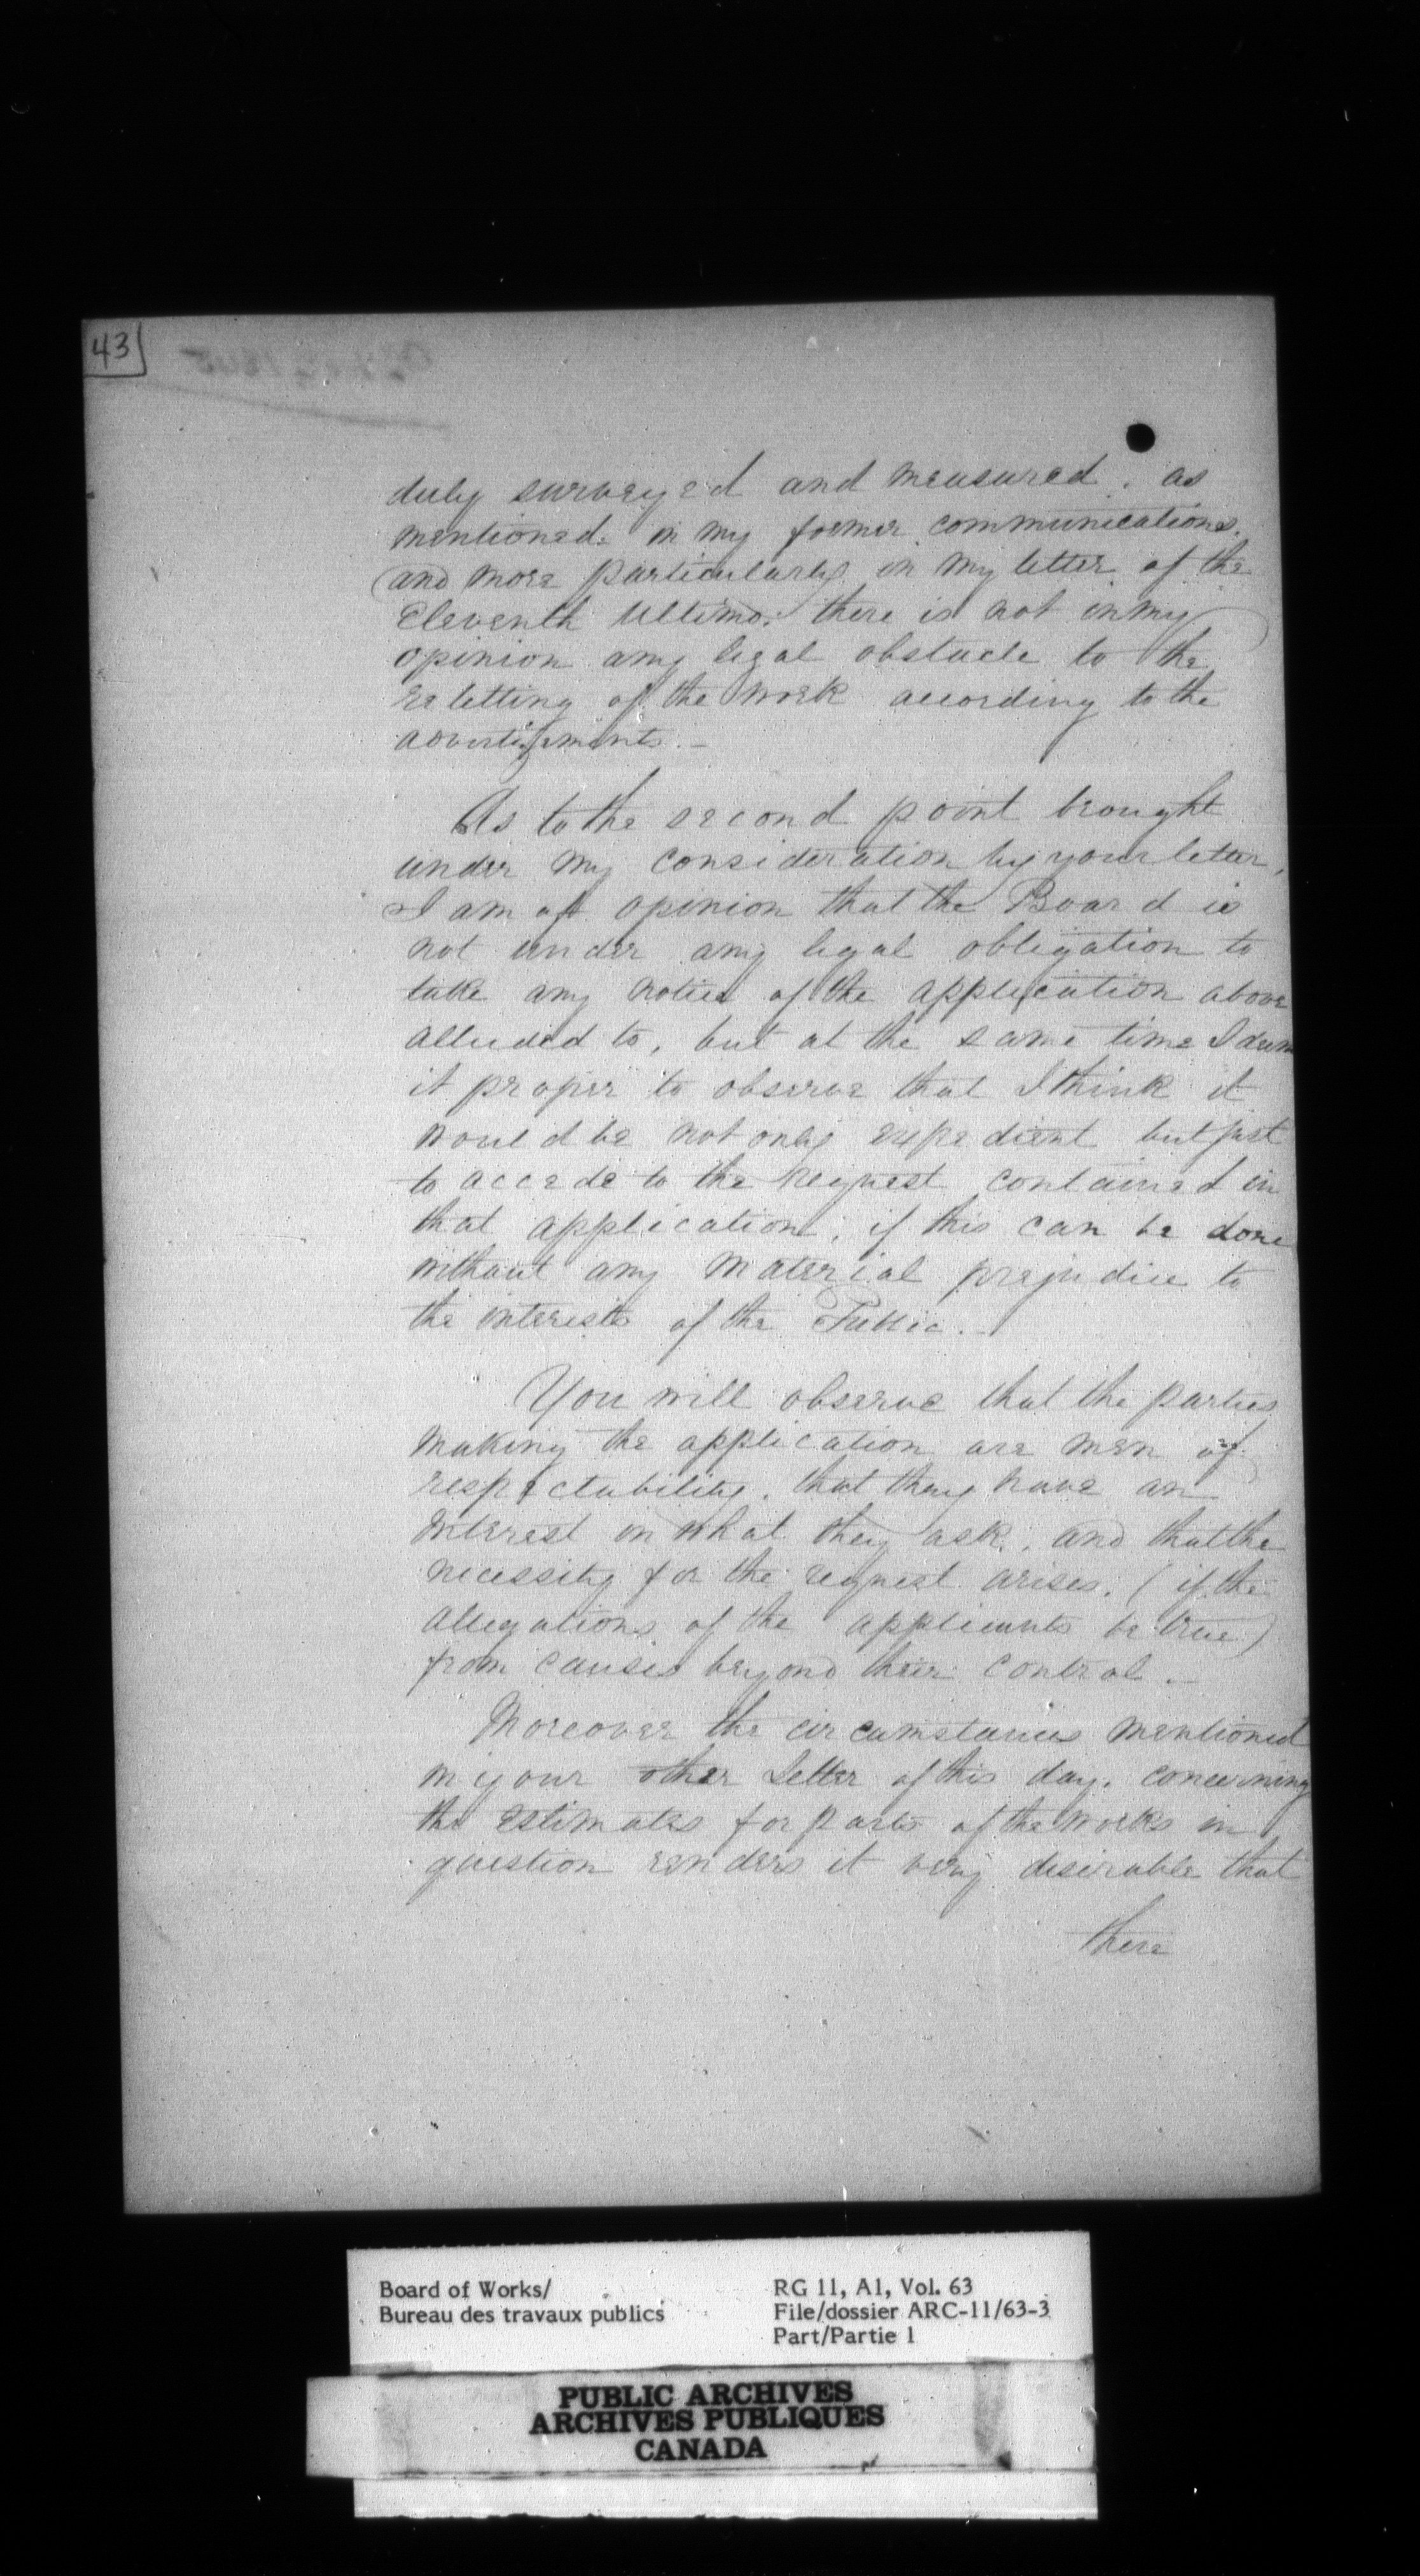 43
duly surveyed and measured, as
mentioned in my former communications,
(and more particularly in my letter of the
Eleventh Ultimo; there is not in my
opinion any legal obstacle to the
reletting of the work according to the
advertisements. _
As to the second point brought
under my consideration by your letter,
I am of opinion that the Board is
not under any legal obligation to
take any notice of the application above
alluded to, but at the same time I deem
it proper to observe that I think it
would be not only expedient but just
to accede to the request contained in
that application, if this can be done
without any material prejudice to
the interests of the Public. _
You will observe that the parties
making the application are men of
respectability, that they have an
interest in what they ask, and that the
necessity for the request arises, (if the
allegations of the applicants be true)
from causes beyond their control. _
Moreover the circumstances mentioned
in your other Letter of this day, concerning
the estimates for parts of the works in
question renders it very desirable that
there
Board of Works/
Bureau des travaux publics
RG 11, A1, Vol. 63
File/dossier ARC-11/63-3
Part/Partie 1
PUBLIC ARCHIVES
ARCHIVES PUBLIQUES
CANADA